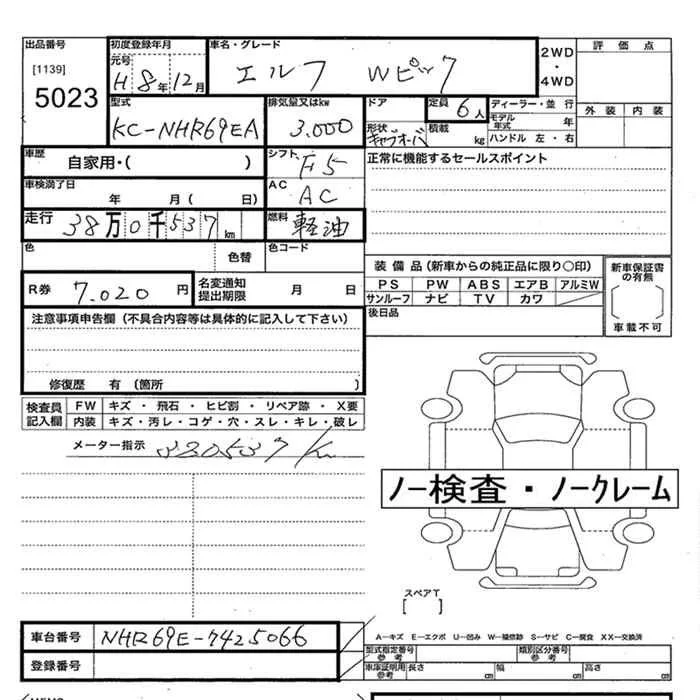 出品番号 初度登録年月 車名・グレード 2WD ・ 4WD 評価点
[1139] 元号
5023 H 8年 12月 エルフ Wピック
型式 排気量又はkw ドア 定員 6人 ディーラー・並 行 外装 内装
KC-NHR69EA 3.000 形状 キャブオーバ 積載 kg モデル年式 年
ハンドル 左・右
車歴 自家用・( ) シフト F5 正常に機能するセールスポイント
車検満了日 年 月( 日) AC AC
走行 38万0千537km 燃料 軽油
色 色替 色コード
装備品(新車からの純正品に限り○印) 新車保証書の有無
R券 7.020円 名変通知提出期限 月 日 PS PW ABS エアB アルミW
サンルーフ ナビ TV カワ
注意事項申告欄(不具合内容等は具体的に記入して下さい) 後日品 車載不可
修復歴 有 〔箇所 〕
検査員記入欄 FW キズ・飛石・ヒビ割・リペア跡・X要
内装 キズ・汚レ・コゲ・穴・スレ・キレ・破レ
メーター指示 380537K
ノー検査・ノークレーム
スペアT
[ ]
車台番号 NHR69E-7425066 A-キズ E-エクボ U-凹み W-補修跡 S-サビ C-腐食 XX-交換済
登録番号 型式指定番号 参考 類別区分番号 参考
車庫証明用 参考 長さ cm 幅 cm 高さ cm
MEMO